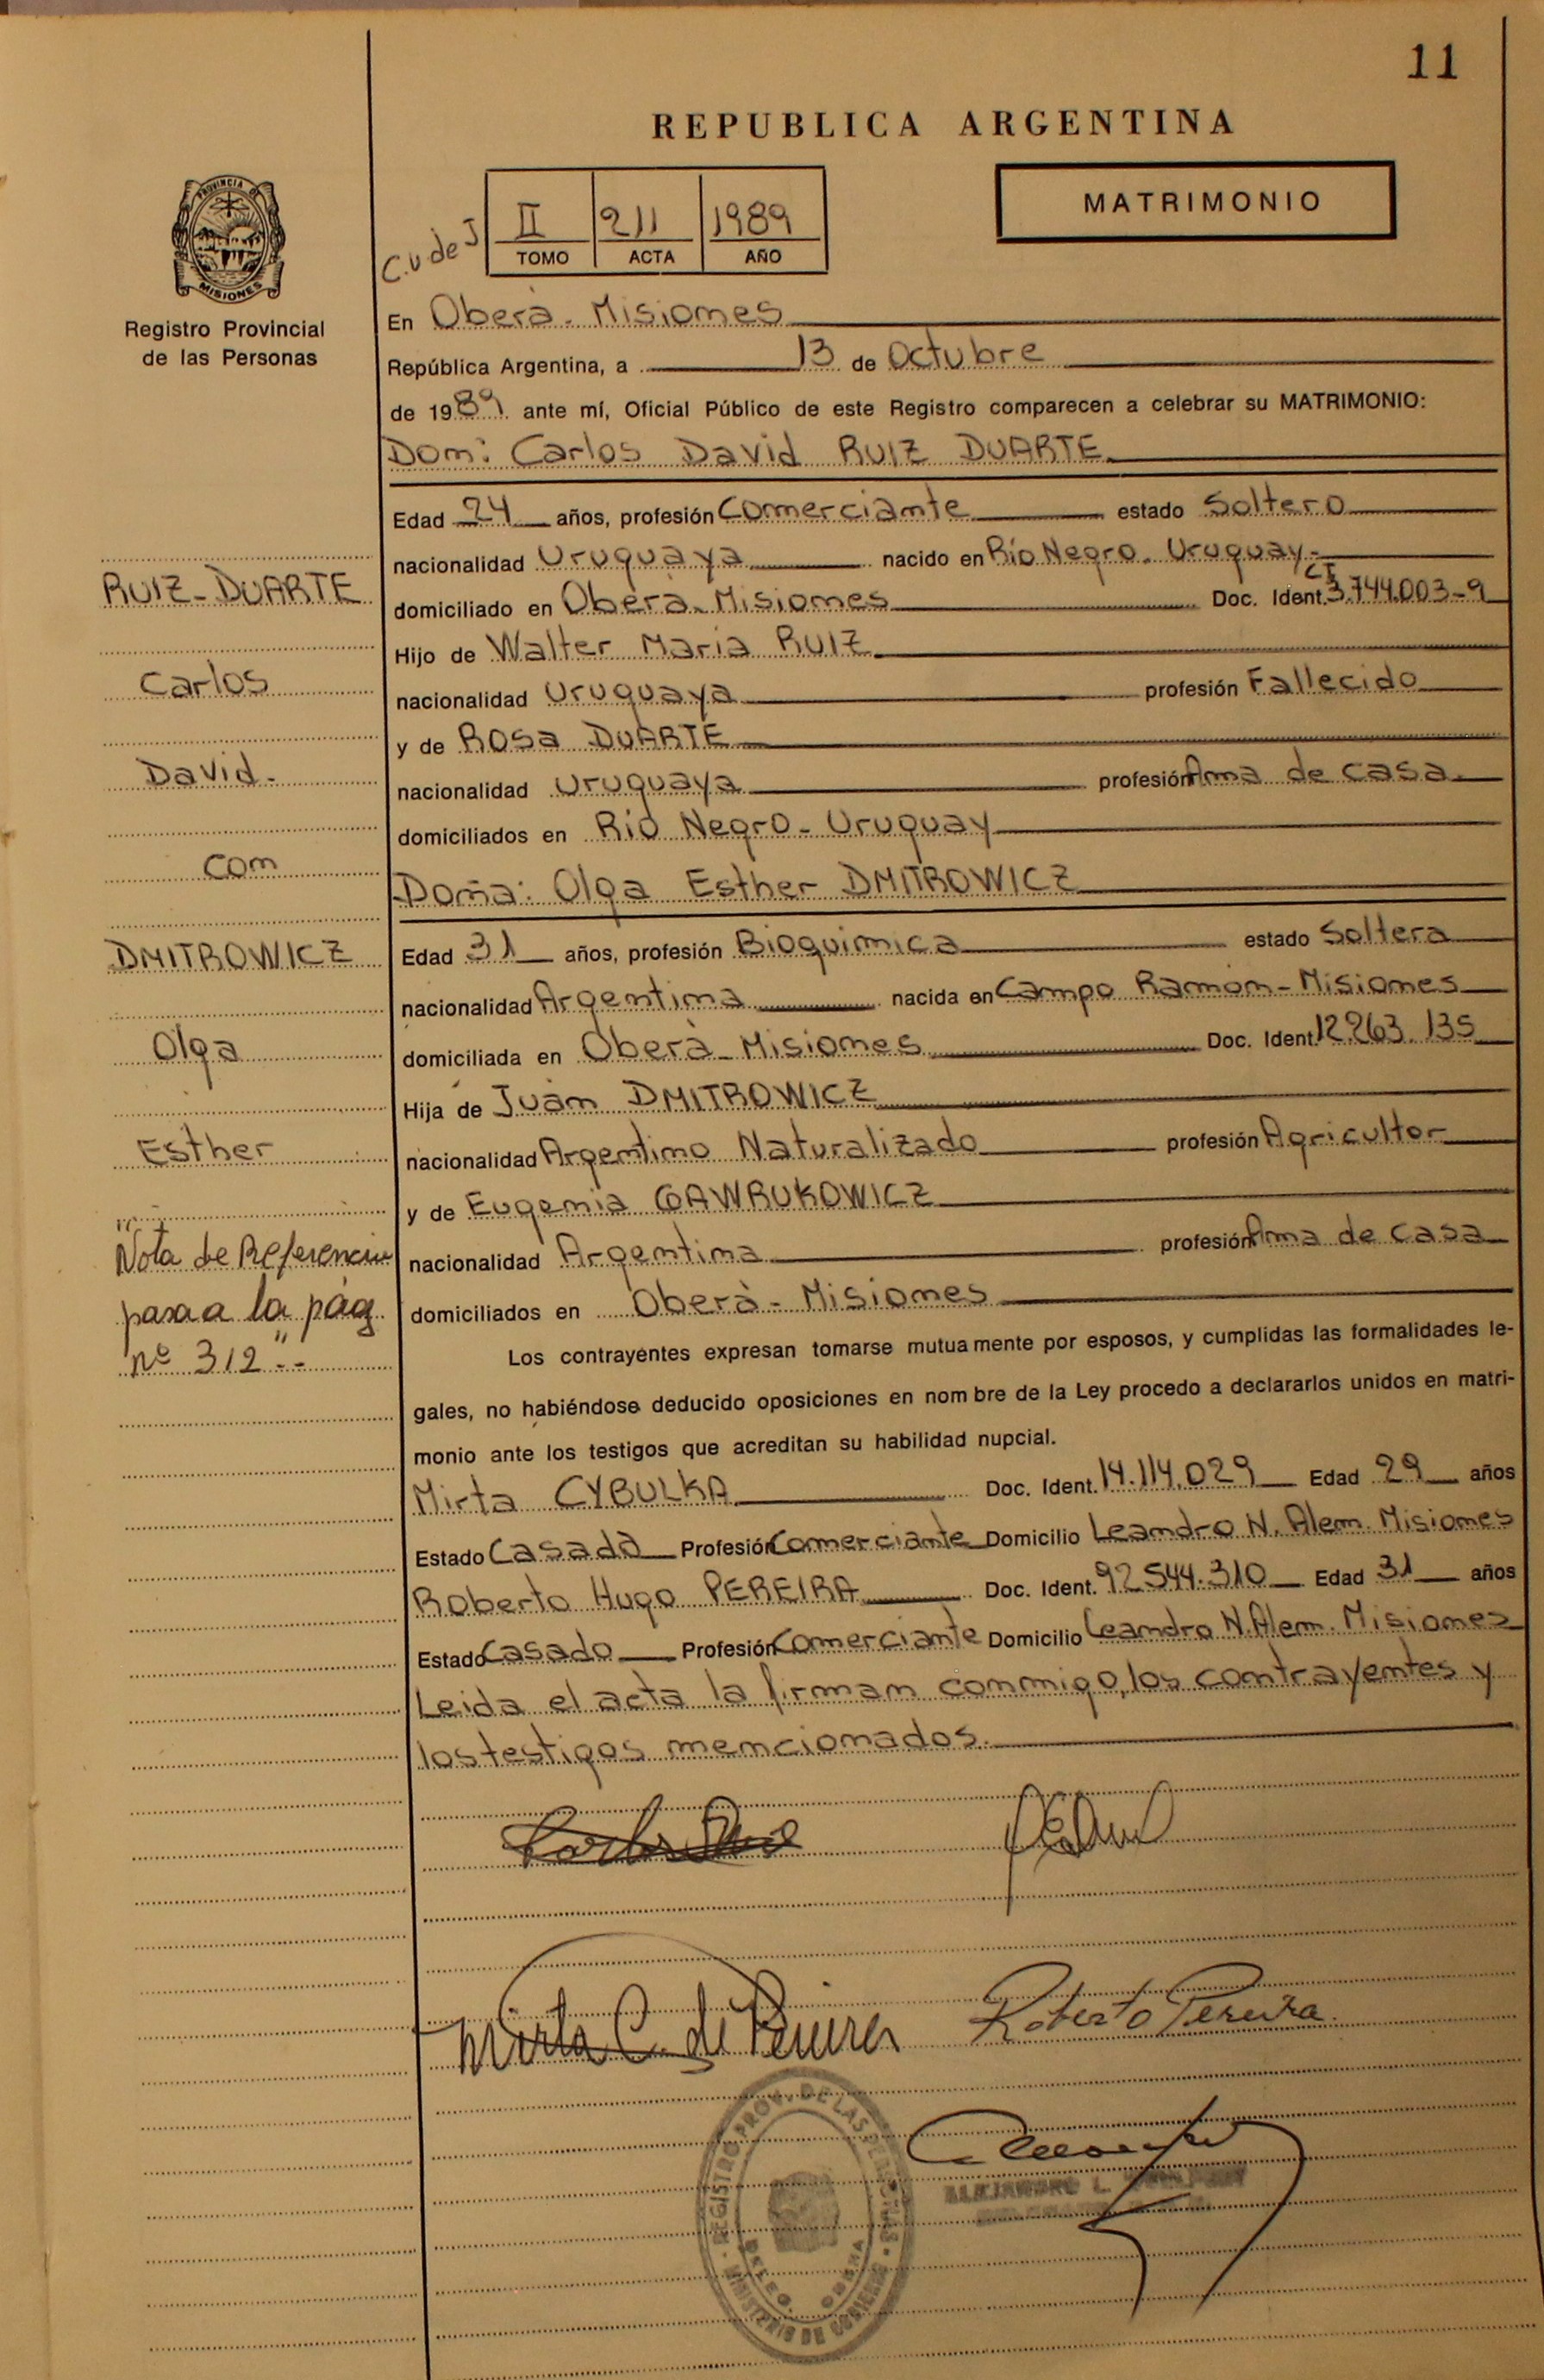 11
REPUBLICA ARGENTINA
PROVINCIA DE
MISIONES
Registro Provincial
de las Personas
C.V de J
II 211 1989
TOMO ACTA AÑO
MATRIMONIO
En Oberà - Misiones
República Argentina, a 13 de Octubre
de 1989 ante mí, Oficial Público de este Registro comparecen a celebrar su MATRIMONIO:
Don: Carlos David RUIZ DUARTE
Edad 24 años, profesión Comerciante estado Soltero
nacionalidad Uruguaya nacido en Río Negro - Uruguay -
domiciliado en Oberà - Misiones Doc. Ident. CI 3.744.003-9
Hijo de Walter Maria RUIZ
nacionalidad Uruguaya profesión Fallecido
y de Rosa DUARTE
nacionalidad Uruguaya profesión Ama de casa
domiciliados en Rió Negro - Uruguay
Doña: Olga Esther DMITROWICZ
Edad 31 años, profesión Bioquimica estado Soltera
nacionalidad Argentina nacida en Campo Ramòn - Misiones
domiciliada en Oberà - Misiones Doc. Ident. 12.263.135
Hija de Juan DMITROWICZ
nacionalidad Argentino Naturalizado profesión Agricultor
y de Eugenia GAWRUKOWICZ
nacionalidad Argentina profesión Ama de casa
domiciliados en Oberà - Misiones
Los contrayentes expresan tomarse mutua mente por esposos, y cumplidas las formalidades le-
gales, no habiéndose deducido oposiciones en nom bre de la Ley procedo a declararlos unidos en matri-
monio ante los testigos que acreditan su habilidad nupcial.
Mirta CYBULKA Doc. Ident. 14.114.029 Edad 29 años
Estado Casada Profesión Comerciante Domicilio Leandro N. Alem. Misiones
Roberto Hugo PEREIRA Doc. Ident. 92.544.310 Edad 31 años
Estado Casado Profesión Comerciante Domicilio Leandro N. Alem. Misiones
Leida el acta la firman conmigo, los contrayentes y
los testigos mencionados.
RUIZ - DUARTE
Carlos
David -
con
DMITROWICZ
Olga
Esther
"Nota de Referencia
pasa a la pág
nº 312" --
Carlos Ruiz
Mirta C. de Pereira Roberto Pereira
REGISTRO PROV. DE LAS PERSONAS
MINISTERIO DE GOBIERNO
DELEG. OBERA
ALEJANDRO L.